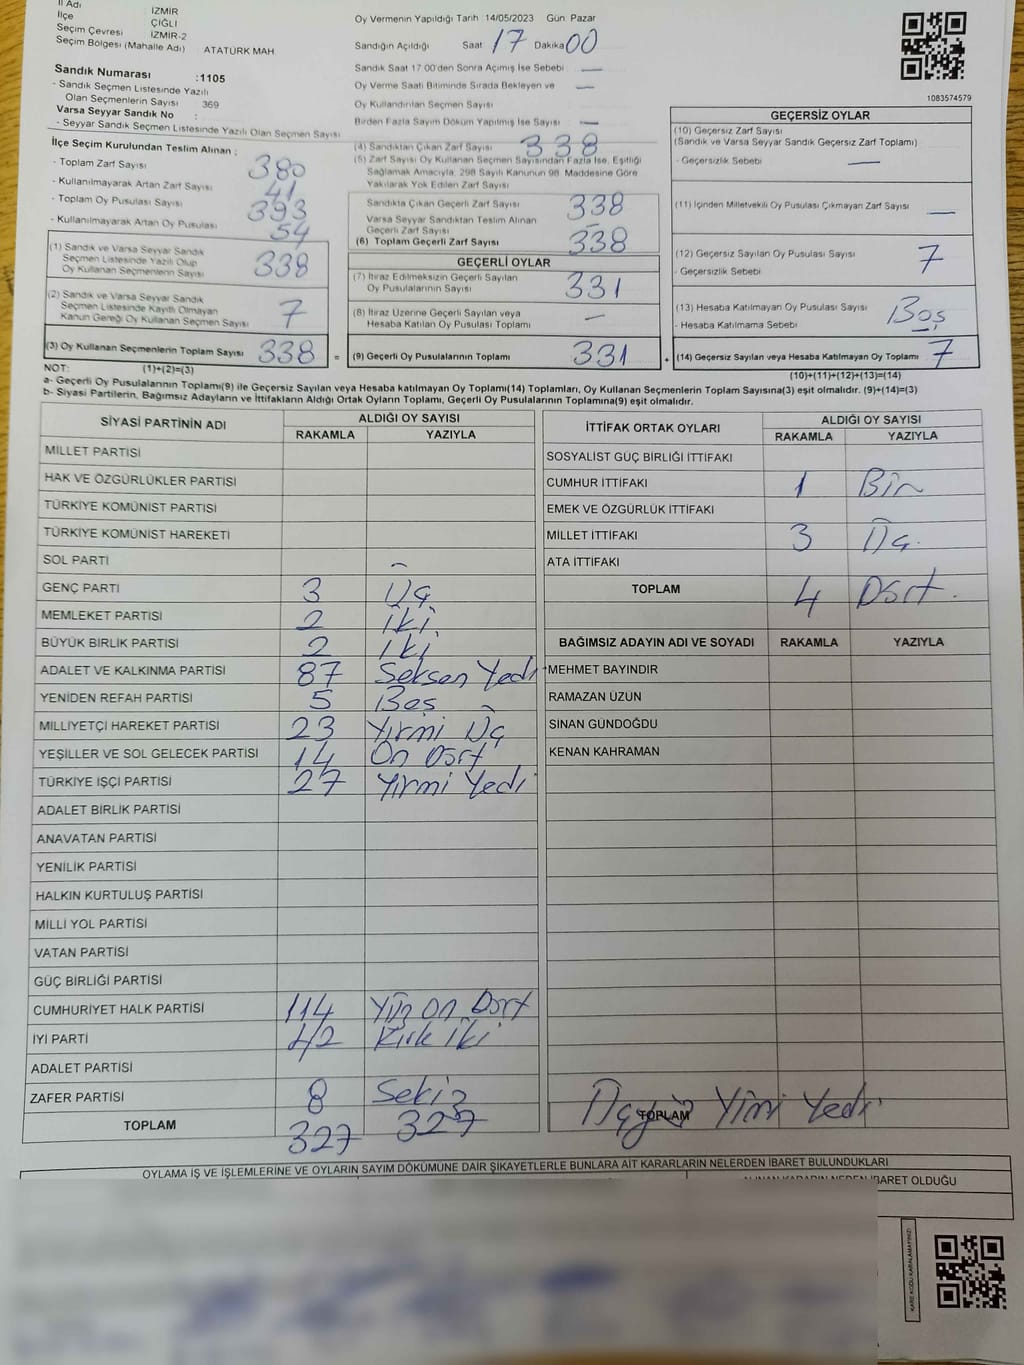 İl Adı İZMİR
İlçe ÇİĞLİ
Seçim Çevresi İZMİR-2
Seçim Bölgesi (Mahalle Adı) ATATÜRK MAH.
Sandık Numarası :1105
- Sandık Seçmen Listesinde Yazılı
Olan Seçmenlerin Sayısı 369
Varsa Seyyar Sandık No :
- Seyyar Sandık Seçmen Listesinde Yazılı Olan Seçmen Sayısı
Oy Vermenin Yapıldığı Tarih 14/05/2023 Gün Pazar
Sandığın Açıldığı Saat 17 Dakika 00
Sandık Saat 17:00'den Sonra Açımış İse Sebebi —
Oy Verme Saati Bitiminde Sırada Bekleyen ve —
Oy Kullandırılan Seçmen Sayısı
Birden Fazla Sayım Döküm Yapılmış İse Sayısı —
1083574579
İlçe Seçim Kurulundan Teslim Alınan ;
- Toplam Zarf Sayısı 380
- Kullanılmayarak Artan Zarf Sayısı 41
- Toplam Oy Pusulası Sayısı 393
- Kullanılmayarak Artan Oy Pusulası 54
(1) Sandık ve Varsa Seyyar Sandık
Seçmen Listesinde Yazılı Olup
Oy Kullanan Seçmenlerin Sayısı 338
(2) Sandık ve Varsa Seyyar Sandık
Seçmen Listesinde Kayıtlı Olmayan
Kanun Gereği Oy Kullanan Seçmen Sayısı 7
(3) Oy Kullanan Seçmenlerin Toplam Sayısı 338 =
(4) Sandıktan Çıkan Zarf Sayısı 338
(5) Zarf Sayısı Oy Kullanan Seçmen Sayısından Fazla İse, Eşitliği
Sağlamak Amacıyla, 298 Sayılı Kanunun 98. Maddesine Göre
Yakılarak Yok Edilen Zarf Sayısı
Sandıkta Çıkan Geçerli Zarf Sayısı 338
Varsa Seyyar Sandıktan Teslim Alınan
Geçerli Zarf Sayısı —
(6) Toplam Geçerli Zarf Sayısı 338
GEÇERLİ OYLAR
(7) İtiraz Edilmeksizin Geçerli Sayılan
Oy Pusulalarının Sayısı 331
(8) İtiraz Üzerine Geçerli Sayılan veya
Hesaba Katılan Oy Pusulası Toplamı —
(9) Geçerli Oy Pusulalarının Toplamı 331 +
GEÇERSİZ OYLAR
(10) Geçersiz Zarf Sayısı
(Sandık ve Varsa Seyyar Sandık Geçersiz Zarf Toplamı)
- Geçersizlik Sebebi —
(11) İçinden Milletvekili Oy Pusulası Çıkmayan Zarf Sayısı —
(12) Geçersiz Sayılan Oy Pusulası Sayısı 7
- Geçersizlik Sebebi
(13) Hesaba Katılmayan Oy Pusulası Sayısı Boş
- Hesaba Katılmama Sebebi —
(14) Geçersiz Sayılan veya Hesaba Katılmayan Oy Toplamı 7
NOT: (1)+(2)=(3) (10)+(11)+(12)+(13)=(14)
a- Geçerli Oy Pusulalarının Toplamı(9) ile Geçersiz Sayılan veya Hesaba katılmayan Oy Toplamı(14) Toplamları, Oy Kullanan Seçmenlerin Toplam Sayısına(3) eşit olmalıdır. (9)+(14)=(3)
b- Siyasi Partilerin, Bağımsız Adayların ve İttifakların Aldığı Ortak Oyların Toplamı, Geçerli Oy Pusulalarının Toplamına(9) eşit olmalıdır.
SİYASİ PARTİNİN ADI ALDIĞI OY SAYISI
RAKAMLA YAZIYLA
MİLLET PARTİSİ
HAK VE ÖZGÜRLÜKLER PARTİSİ
TÜRKİYE KOMÜNİST PARTİSİ
TÜRKİYE KOMÜNİST HAREKETİ
SOL PARTİ
GENÇ PARTİ 3 Üç
MEMLEKET PARTİSİ 2 İki
BÜYÜK BİRLİK PARTİSİ 2 İki
ADALET VE KALKINMA PARTİSİ 87 Seksen Yedi
YENİDEN REFAH PARTİSİ 5 Beş
MİLLİYETÇİ HAREKET PARTİSİ 23 Yirmi Üç
YEŞİLLER VE SOL GELECEK PARTİSİ 14 On Dört
TÜRKİYE İŞÇİ PARTİSİ 27 Yirmi Yedi
ADALET BİRLİK PARTİSİ
ANAVATAN PARTİSİ
YENİLİK PARTİSİ
HALKIN KURTULUŞ PARTİSİ
MİLLİ YOL PARTİSİ
VATAN PARTİSİ
GÜÇ BİRLİĞİ PARTİSİ
CUMHURİYET HALK PARTİSİ 114 Yüz On Dört
İYİ PARTİ 42 Kırk İki
ADALET PARTİSİ
ZAFER PARTİSİ 8 Sekiz
TOPLAM 327 327
İTTİFAK ORTAK OYLARI ALDIĞI OY SAYISI
RAKAMLA YAZIYLA
SOSYALİST GÜÇ BİRLİĞİ İTTİFAKI
CUMHUR İTTİFAKI 1 Bir
EMEK VE ÖZGÜRLÜK İTTİFAKI
MİLLET İTTİFAKI 3 Üç.
ATA İTTİFAKI
TOPLAM 4 Dört.
BAĞIMSIZ ADAYIN ADI VE SOYADI RAKAMLA YAZIYLA
MEHMET BAYINDIR
RAMAZAN UZUN
SİNAN GÜNDOĞDU
KENAN KAHRAMAN
TOPLAM Üçyüz Yirmi Yedi
OYLAMA İŞ VE İŞLEMLERİNE VE OYLARIN SAYIM DÖKÜMÜNE DAİR ŞİKAYETLERLE BUNLARA AİT KARARLARIN NELERDEN İBARET BULUNDUKLARI
ALINAN KARARIN NEDEN İBARET OLDUĞU